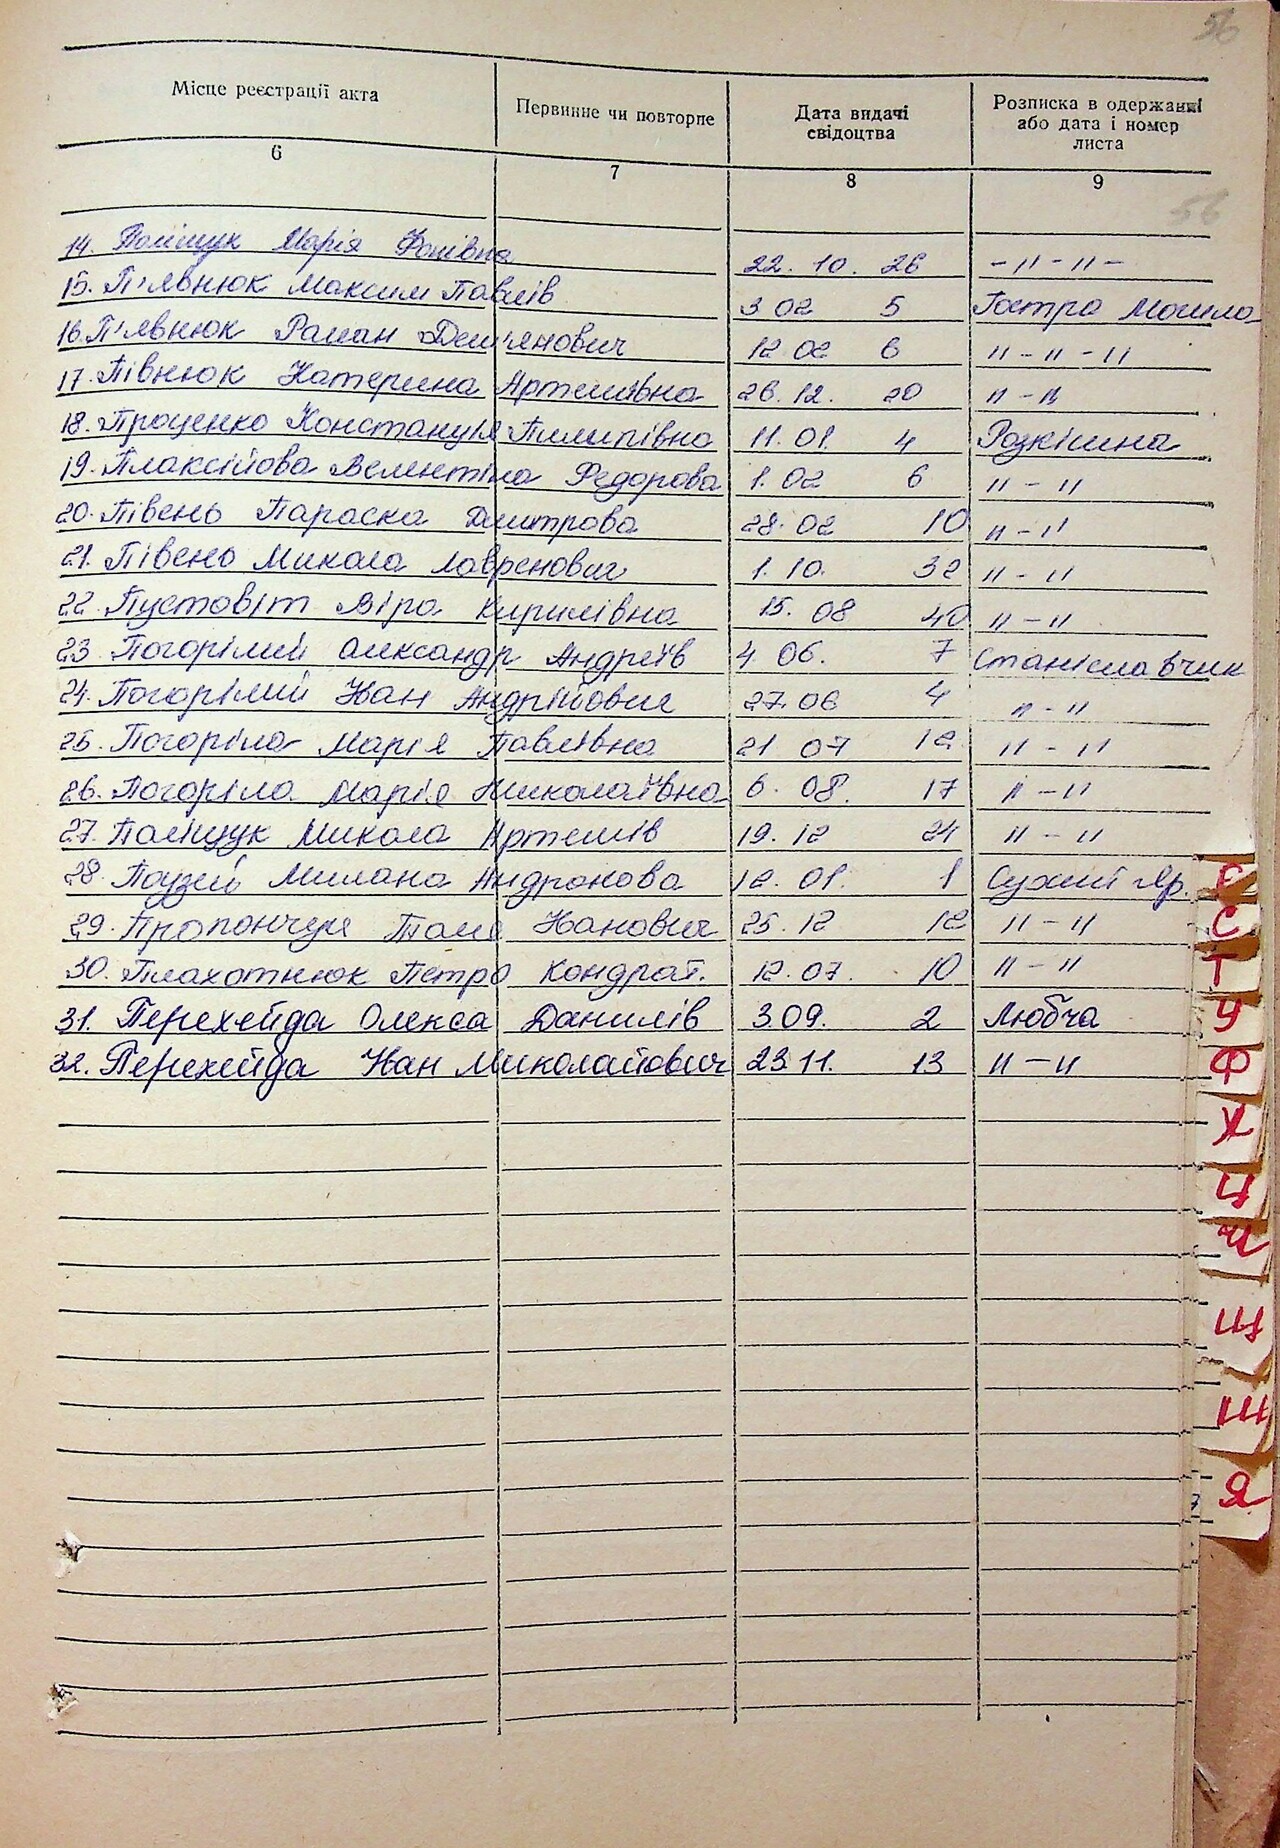 56
Місце реєстрації акта Первинне чи повторне Дата видачі свідоцтва Розписка в одержанні або дата і номер листа
6 7 8 9
56
14. Поліщук Марія Фонівна 22. 10. 26 -"-"-
15. П'явнюк Максим Павлів 3 02 5 Гостра Могила
16. П'явнюк Роман Дем'янович 12 02 6 "-"-"
17. Півнюк Катерина Артемівна 26. 12. 20 "-"
18. Проценко Констанція Пилипівна 11. 01. 4 Розкішна
19. Плаксійова Велентіна Федорова 1. 02 6 "-"
20. Півень Параска Дмитрова 28. 02 10 "-"
21. Півень Микола Лавренович 1. 10. 32 "-"
22. Пустовіт Віра Кирилівна 15. 08 40 "-"
23. Погорілий Олександр Андреїв 4 06. 7 Станіславчик
24. Погорілий Іван Андрійович 27. 06 4 "-"
25. Погоріла Марія Павлівна 21 07 12 "-"
26. Погоріла Марія Миколаївна 6. 08. 17 "-"
27. Поліщук Микола Артемів 19. 12 24 "-"
28. Поузей Милана Андронова 12. 01. 1 Сухий Яр.
29. Пропончук Іванович 25. 12 12 "-"
30. Плахотнюк Петро Кондрат. 12. 07. 10 "-"
31. Перехейда Олекса Данилів 3.09. 2 Любча
32. Перехейда Іван Миколайович 23 11. 13 "-"
С
Т
У
Ф
Х
Ц
Ч
Щ
Ш
Я